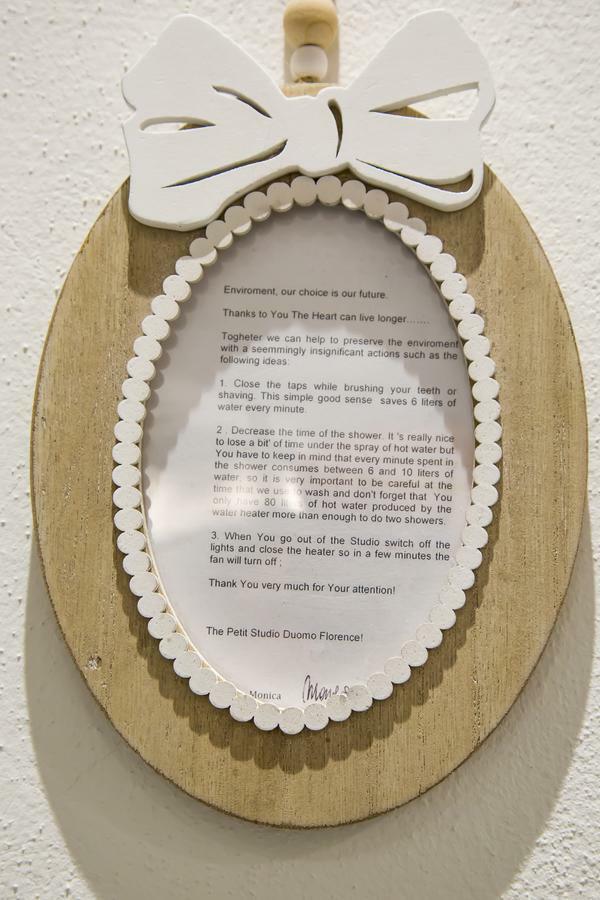 Enviroment, our choice is our future.
Thanks to You The Heart can live longer.......
Togheter we can help to preserve the enviroment
with a seemmingly insignificant actions such as the
following ideas:
1. Close the taps while brushing your teeth or
shaving. This simple good sense saves 6 liters of
water every minute.
2 . Decrease the time of the shower. It 's really nice
to lose a bit' of time under the spray of hot water but
You have to keep in mind that every minute spent in
the shower consumes between 6 and 10 liters of
water, so it is very important to be careful at the
time that we use to wash and don't forget that You
only have 80 liters of hot water produced by the
water heater more than enough to do two showers.
3. When You go out of the Studio switch off the
lights and close the heater so in a few minutes the
fan will turn off ;
Thank You very much for Your attention!
The Petit Studio Duomo Florence!
Monica